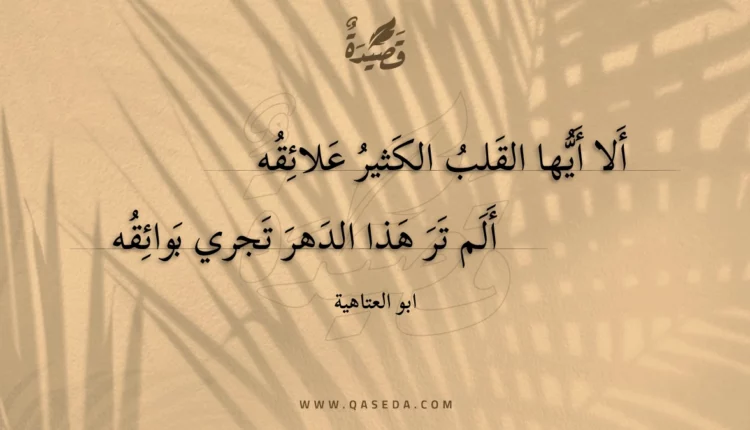 قَصِيْدَةٌ
أَلا أَيُّها القَلبُ الكَثيرُ عَلائِقُه
أَلَم تَرَ هَذا الدَهرَ تَجري بَوائِقُه
ابو العتاهية
WWW.QASEDA.COM